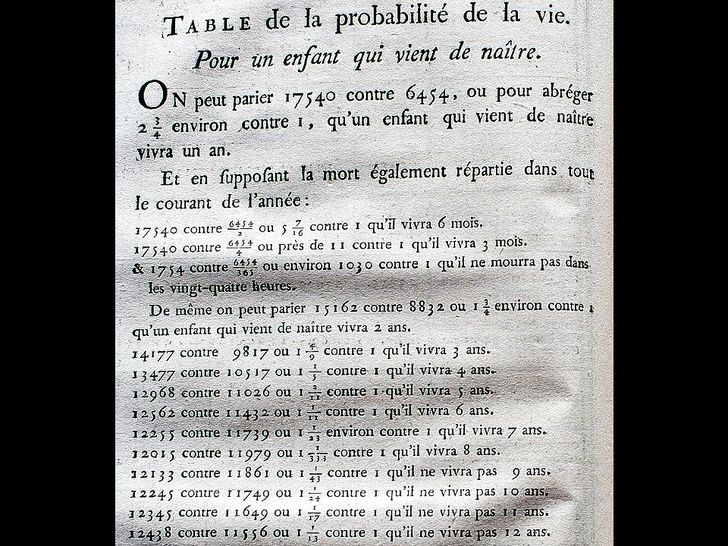 TABLE de la probabilité de la vie.
Pour un enfant qui vient de naître.
ON peut parier 17540 contre 6454, ou pour abréger
2 3/4 environ contre 1, qu'un enfant qui vient de naître
vivra un an.
Et en ſuppoſant la mort également répartie dans tout
le courant de l'année:
17540 contre 6454/2 ou 5 7/16 contre 1 qu'il vivra 6 mois.
17540 contre 6454/4 ou près de 11 contre 1 qu'il vivra 3 mois.
& 1754 contre 6454/365 ou environ 1030 contre 1 qu'il ne mourra pas dans
les vingt-quatre heures.
De même on peut parier 15162 contre 8832 ou 1 3/4 environ contre 1
qu'un enfant qui vient de naître vivra 2 ans.
14177 contre 9817 ou 1 4/9 contre 1 qu'il vivra 3 ans.
13477 contre 10517 ou 1 1/5 contre 1 qu'il vivra 4 ans.
12968 contre 11026 ou 1 2/11 contre 1 qu'il vivra 5 ans.
12562 contre 11432 ou 1 1/11 contre 1 qu'il vivra 6 ans.
12255 contre 11739 ou 1 1/23 environ contre 1 qu'il vivra 7 ans.
12015 contre 11979 ou 1 1/333 contre 1 qu'il vivra 8 ans.
12133 contre 11861 ou 1 1/43 contre 1 qu'il ne vivra pas 9 ans.
12245 contre 11749 ou 1 1/24 contre 1 qu'il ne vivra pas 10 ans.
12345 contre 11649 ou 1 1/17 contre 1 qu'il ne vivra pas 11 ans.
12438 contre 11556 ou 1 1/13 contre 1 qu'il ne vivra pas 12 ans.